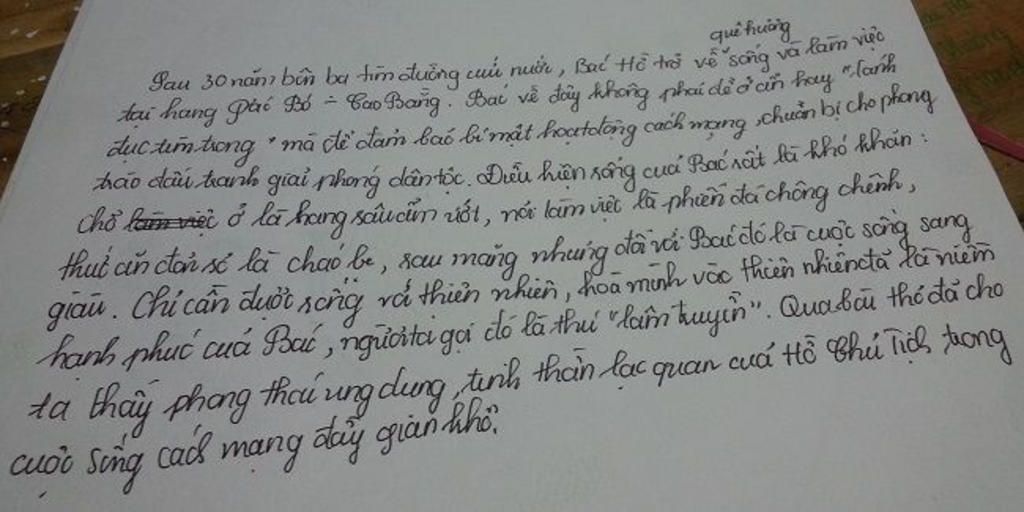 quê hương
Sau 30 năm bôn ba tìm đường cứu nước, Bác Hồ trở về sống và làm việc
tại hang Pác Bó - Cao Bằng. Bác về đây không phải để ở ẩn hay "lánh
đục tìm trong" mà để đảm bảo bí mật hoạt động cách mạng, chuẩn bị cho phong
trào đấu tranh giải phóng dân tộc. Điều kiện sống của Bác rất là khó khăn:
chỗ làm việc ở là hang sâu ẩm ướt, nơi làm việc là phiến đá chông chênh,
thức ăn đơn sơ là cháo bẹ, rau măng nhưng đối với Bác đó là cuộc sống sang
giàu. Chỉ cần được sống với thiên nhiên, hòa mình vào thiên nhiên đã là niềm
hạnh phúc của Bác, người ta gọi đó là thú "lâm tuyền". Qua bài thơ đã cho
ta thấy phong thái ung dung, tinh thần lạc quan của Hồ Chủ Tịch trong
cuộc sống cách mạng đầy gian khổ.